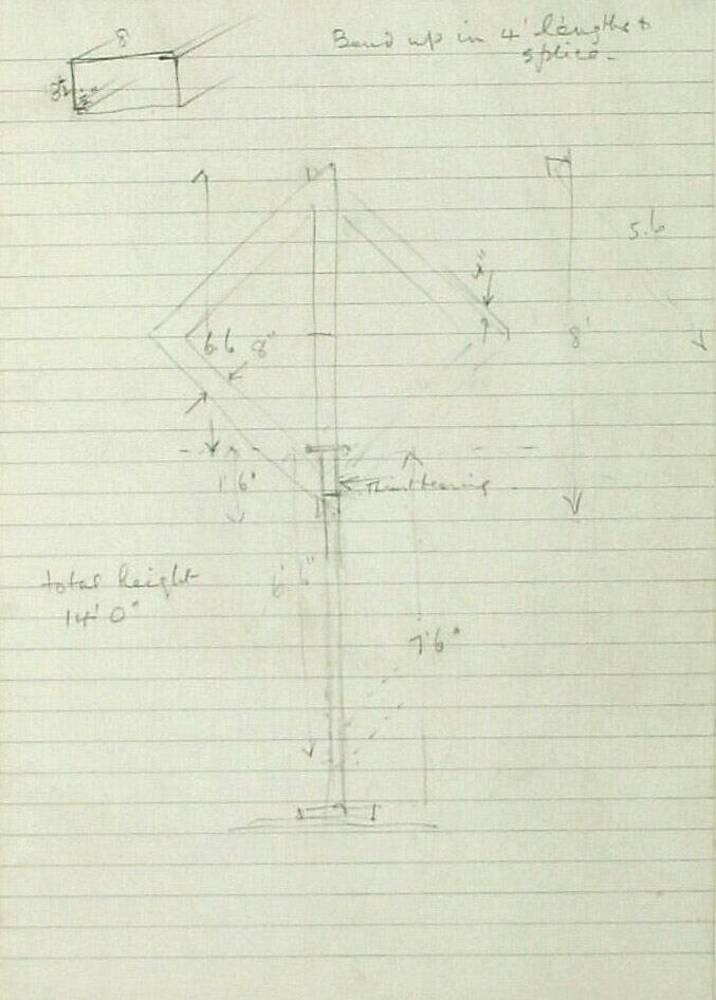 8
Bend up in 4' lengths &
splice -
3½
5.6
6.6 8"
8'
1'6"
Thrust bearing
total height
14' 0"
6' 6"
7'6"